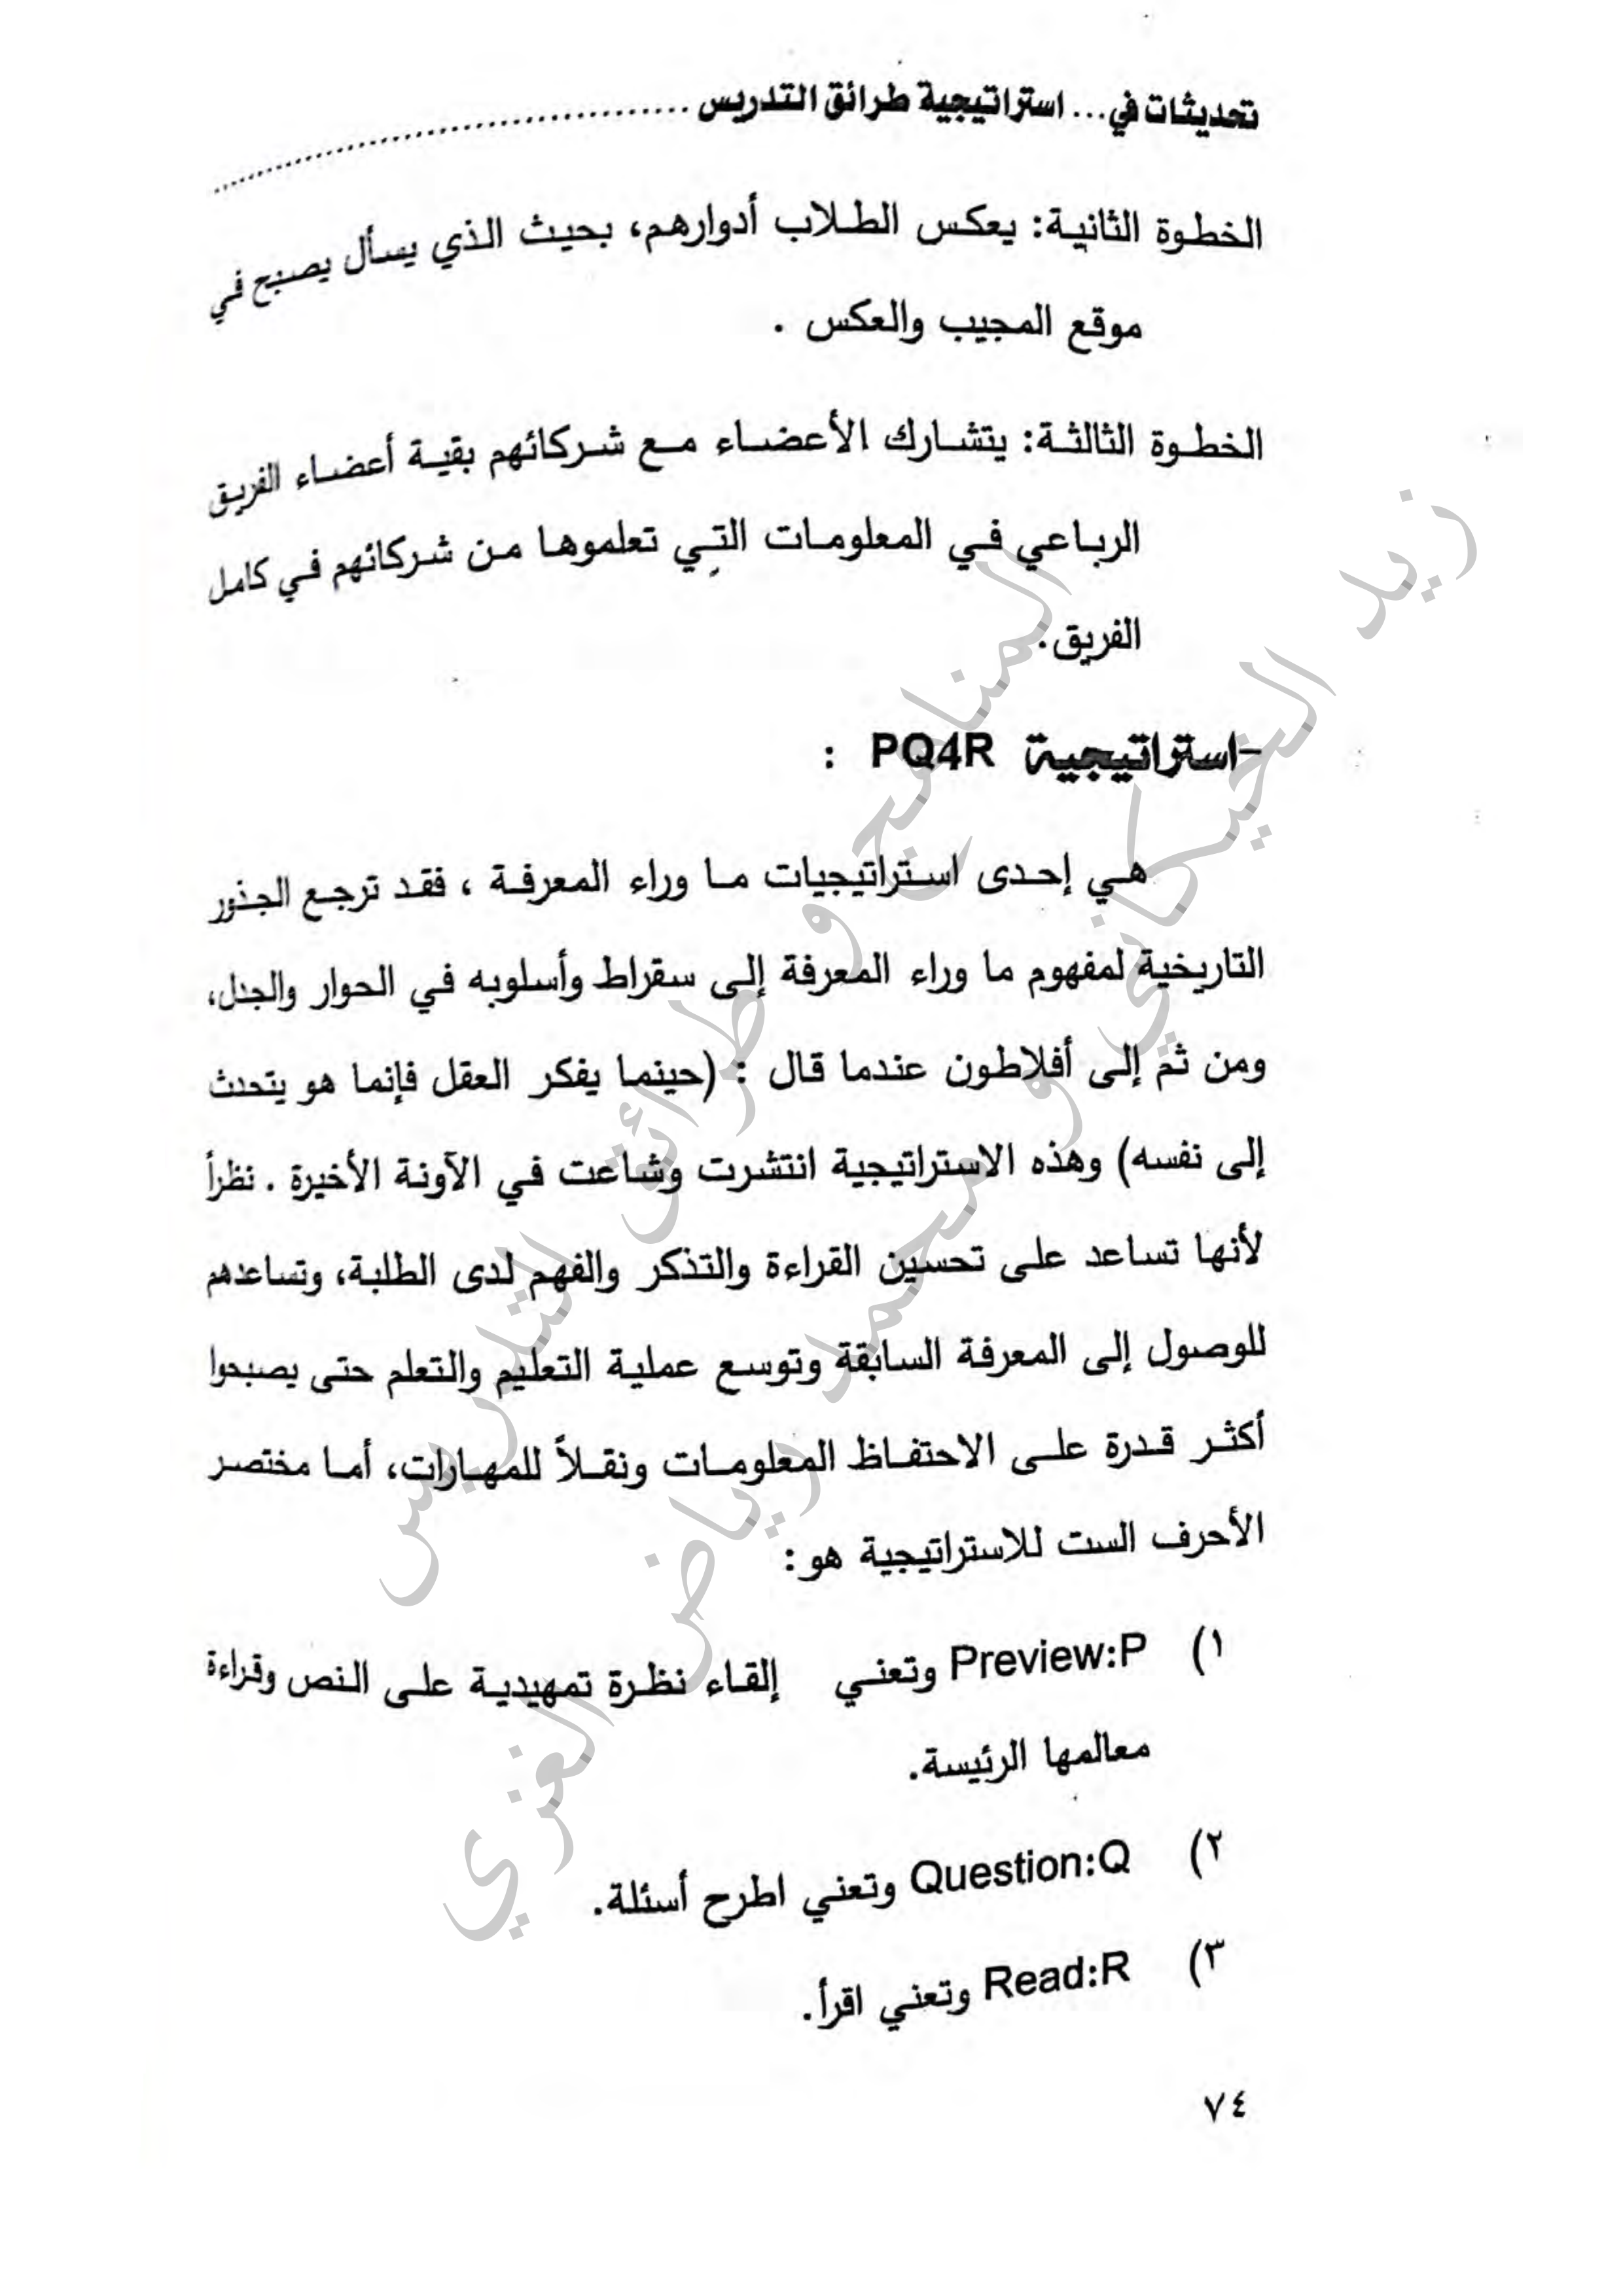 تحديثات في... استراتيجية طرائق التدريس ........................................
الخطوة الثانية: يعكس الطلاب أدوارهم، بحيث الذي يسأل يصبح في
موقع المجيب والعكس .
الخطوة الثالثة: يتشارك الأعضاء مع شركائهم بقية أعضاء الفريق
الرباعي في المعلومات التي تعلموها من شركائهم في كامل
الفريق.
-استراتيجية PQ4R :
هي إحدى استراتيجيات ما وراء المعرفة ، فقد ترجع الجذور
التاريخية لمفهوم ما وراء المعرفة إلى سقراط وأسلوبه في الحوار والجدل،
ومن ثم إلى أفلاطون عندما قال : (حينما يفكر العقل فإنما هو يتحدث
إلى نفسه) وهذه الاستراتيجية انتشرت وشاعت في الآونة الأخيرة . نظراً
لأنها تساعد على تحسين القراءة والتذكر والفهم لدى الطلبة، وتساعدهم
للوصول إلى المعرفة السابقة وتوسع عملية التعليم والتعلم حتى يصبحوا
أكثر قدرة على الاحتفاظ المعلومات ونقلاً للمهارات، أما مختصر
الأحرف الست للاستراتيجية هو:
١) Preview:P وتعني إلقاء نظرة تمهيدية على النص وقراءة
معالمها الرئيسة.
٢) Question:Q وتعني اطرح أسئلة.
٣) Read:R وتعني اقرأ.
٧٤
المناهج و طرائق التدريس
زيد الخيكاني و محمد رياض الغزي